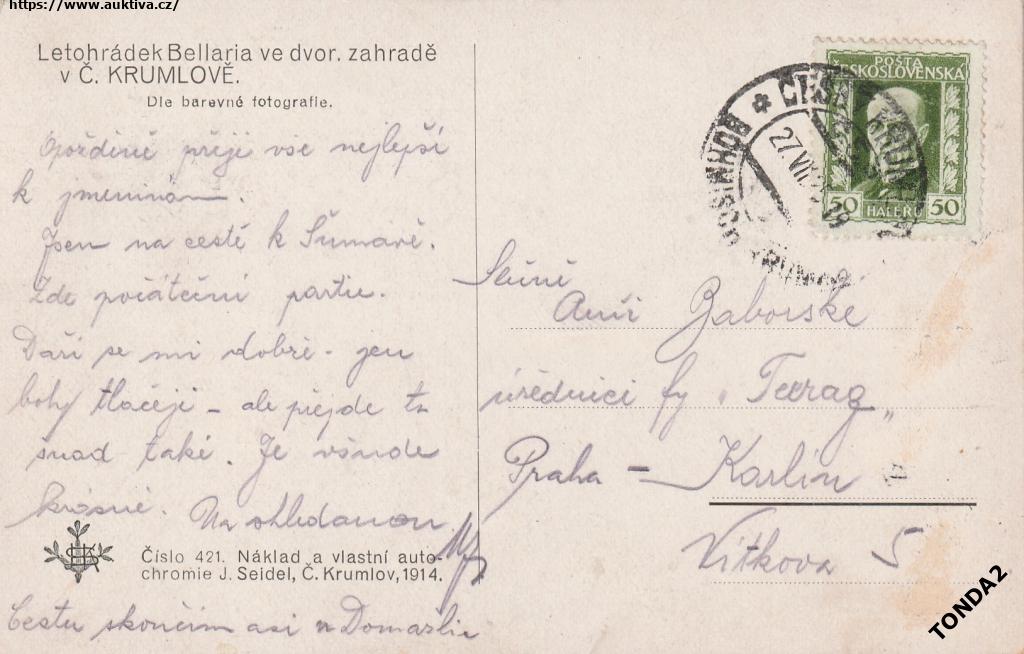 https://www.auktiva.cz/
Letohrádek Bellaria ve dvor. zahradě
v Č. KRUMLOVĚ.
Dle barevné fotografie.
Opožděně přeji vše nejlepší
k jmeninám.
Jsem na cestě k Šumavě.
Zde počáteční partie.
Daří se mi dobře - jen
boty tlačějí - ale přejde to
snad také. Je všude
krásně. Na shledanou
Číslo 421. Náklad a vlastní auto-
chromie J. Seidel, Č. Krumlov, 1914.
Cestu skončím asi v
POŠTA
ČESKOSLOVENSKÁ
50 HALÉŘŮ 50
ČESK KRUML
27 VII
Slečně
Aničí Zaborské
úřednici fy „Terrag"
Praha - Karlín
Vítkova 5
TONDA2